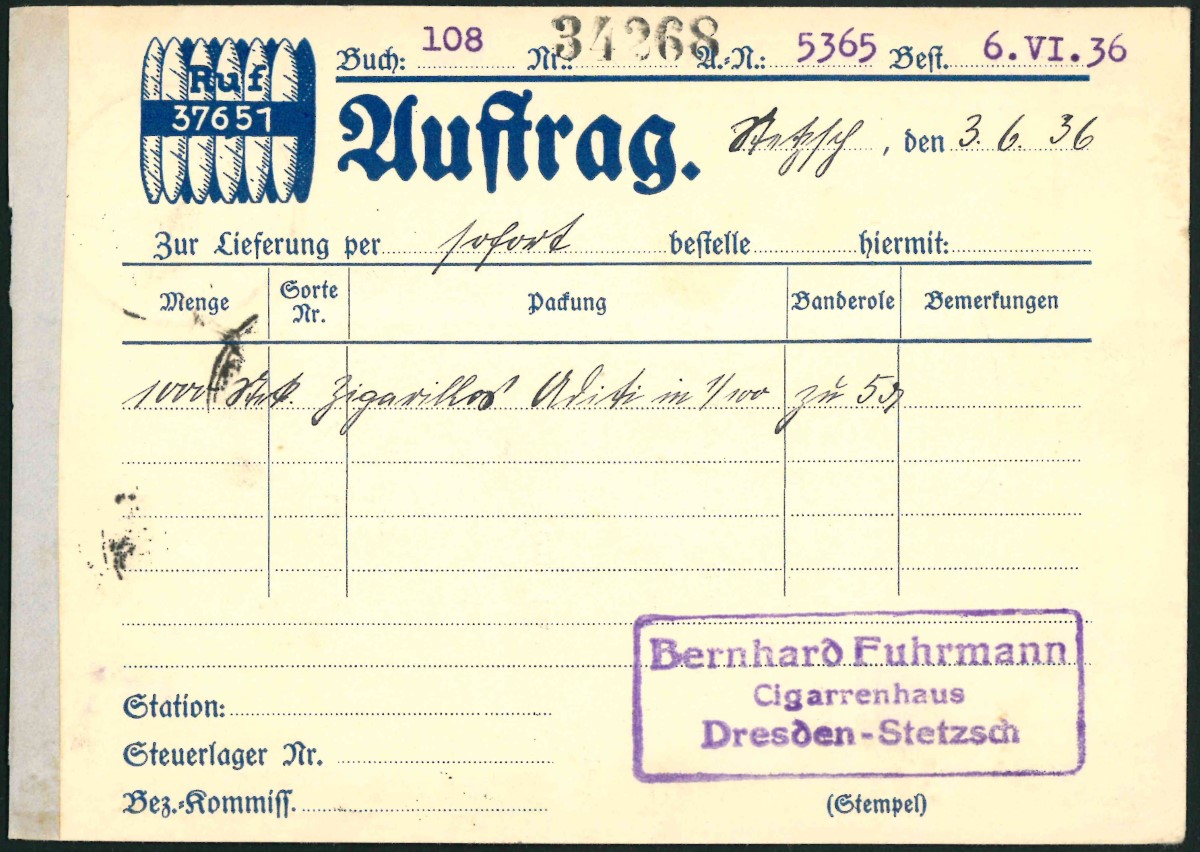 Ruf
37651
Buch: 108 Nr.: 34268 A.-N.: 5365 Best. 6.VI.36
Auftrag. Stetzsch, den 3. 6. 36
Zur Lieferung per sofort bestelle hiermit:
Menge Sorte Nr. Packung Banderole Bemerkungen
1000 Stck. Zigarillos in 1/100 zu 5
Station:
Steuerlager Nr.
Bez.-Kommiss.
Bernhard Fuhrmann
Cigarrenhaus
Dresden-Stetzsch
(Stempel)